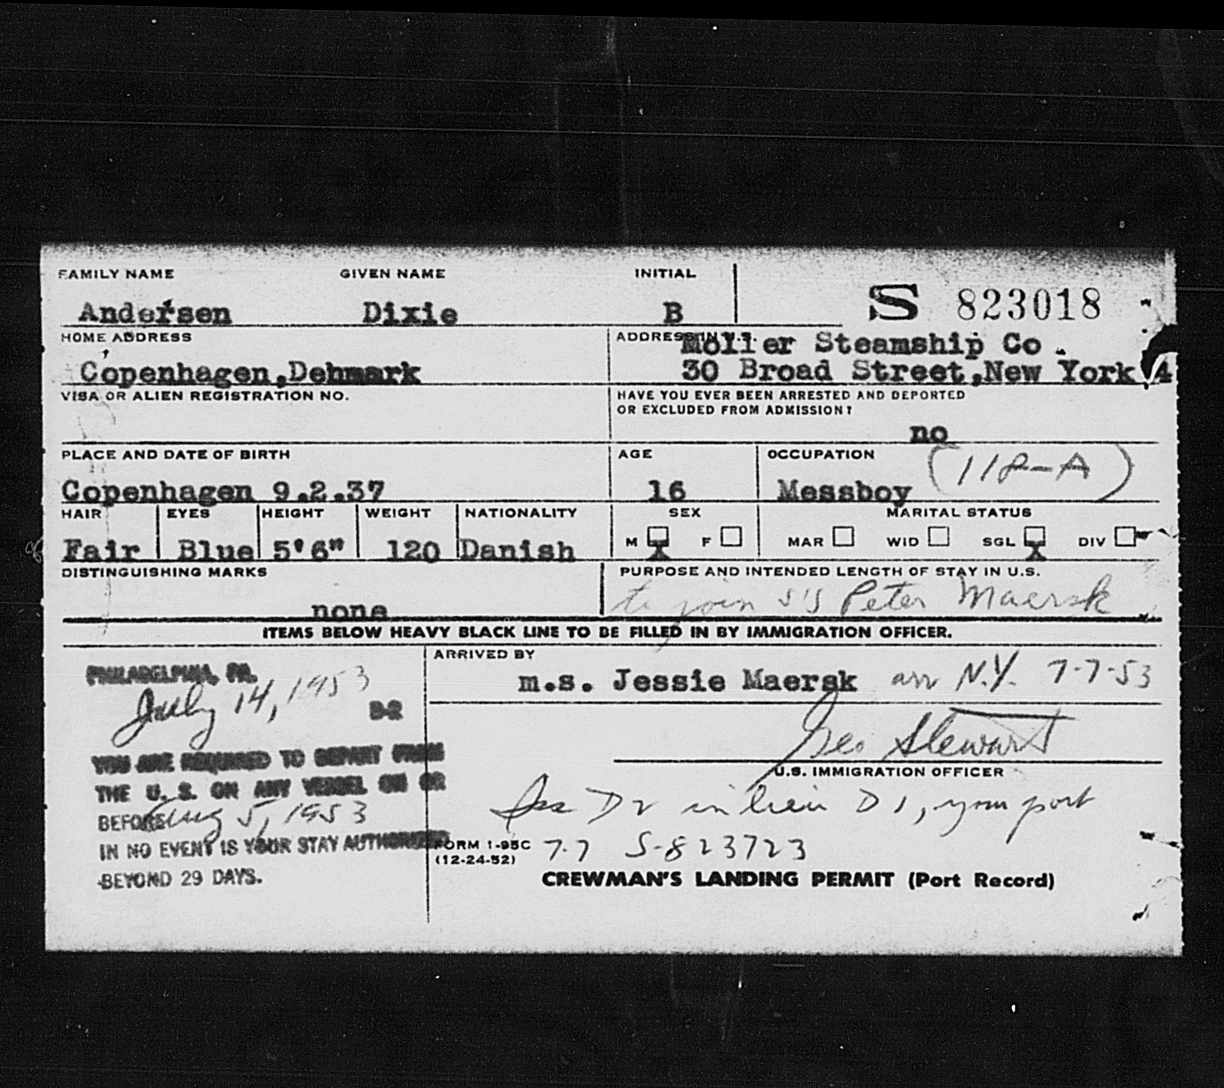 FAMILY NAME GIVEN NAME INITIAL
Andersen Dixie B S 823018
HOME ADDRESS ADDRESS IN
Copenhagen,Dehmark Moller Steamship Co.
30 Broad Street,New York 4
VISA OR ALIEN REGISTRATION NO. HAVE YOU EVER BEEN ARRESTED AND DEPORTED
OR EXCLUDED FROM ADMISSION?
no
PLACE AND DATE OF BIRTH AGE OCCUPATION
Copenhagen 9.2.37 16 Messboy
HAIR EYES HEIGHT WEIGHT NATIONALITY SEX MARITAL STATUS
Fair Blue 5'6" 120 Danish M X F MAR WID SGL X DIV
DISTINGUISHING MARKS PURPOSE AND INTENDED LENGTH OF STAY IN U.S.
none to join S'S Peter Maersk
ITEMS BELOW HEAVY BLACK LINE TO BE FILLED IN BY IMMIGRATION OFFICER.
PHILADELPHIA, PA. ARRIVED BY
July 14, 1953 m.s. Jessie Maersk arr N.Y. 7-7-53
D-2
Geo Stewart
U.S. IMMIGRATION OFFICER
YOU ARE REQUIRED TO DEPART FROM
THE U. S. ON ANY VESSEL ON OR
BEFORE Aug 5, 1953
Iss D2 in lieu D1, your port
IN NO EVENT IS YOUR STAY AUTHORIZED
BEYOND 29 DAYS.
FORM I-95C 7-7 S-823723
(12-24-52)
CREWMAN'S LANDING PERMIT (Port Record)